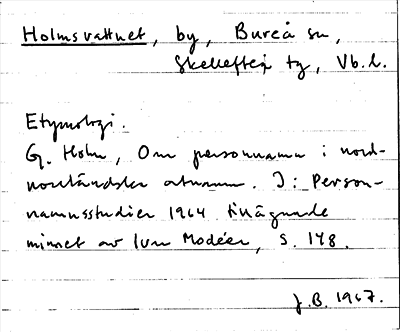 Holmsvattnet, by, Bureå sn,
Skellefteå tg, Vb.l.
Etymologi.
G. Holm, Om personnamn i nord-
norrländska ortnamn. I: Person-
namnsstudier 1964 tillägnade
minnet av Ivar Modéer, s. 148.
J.B. 1967.